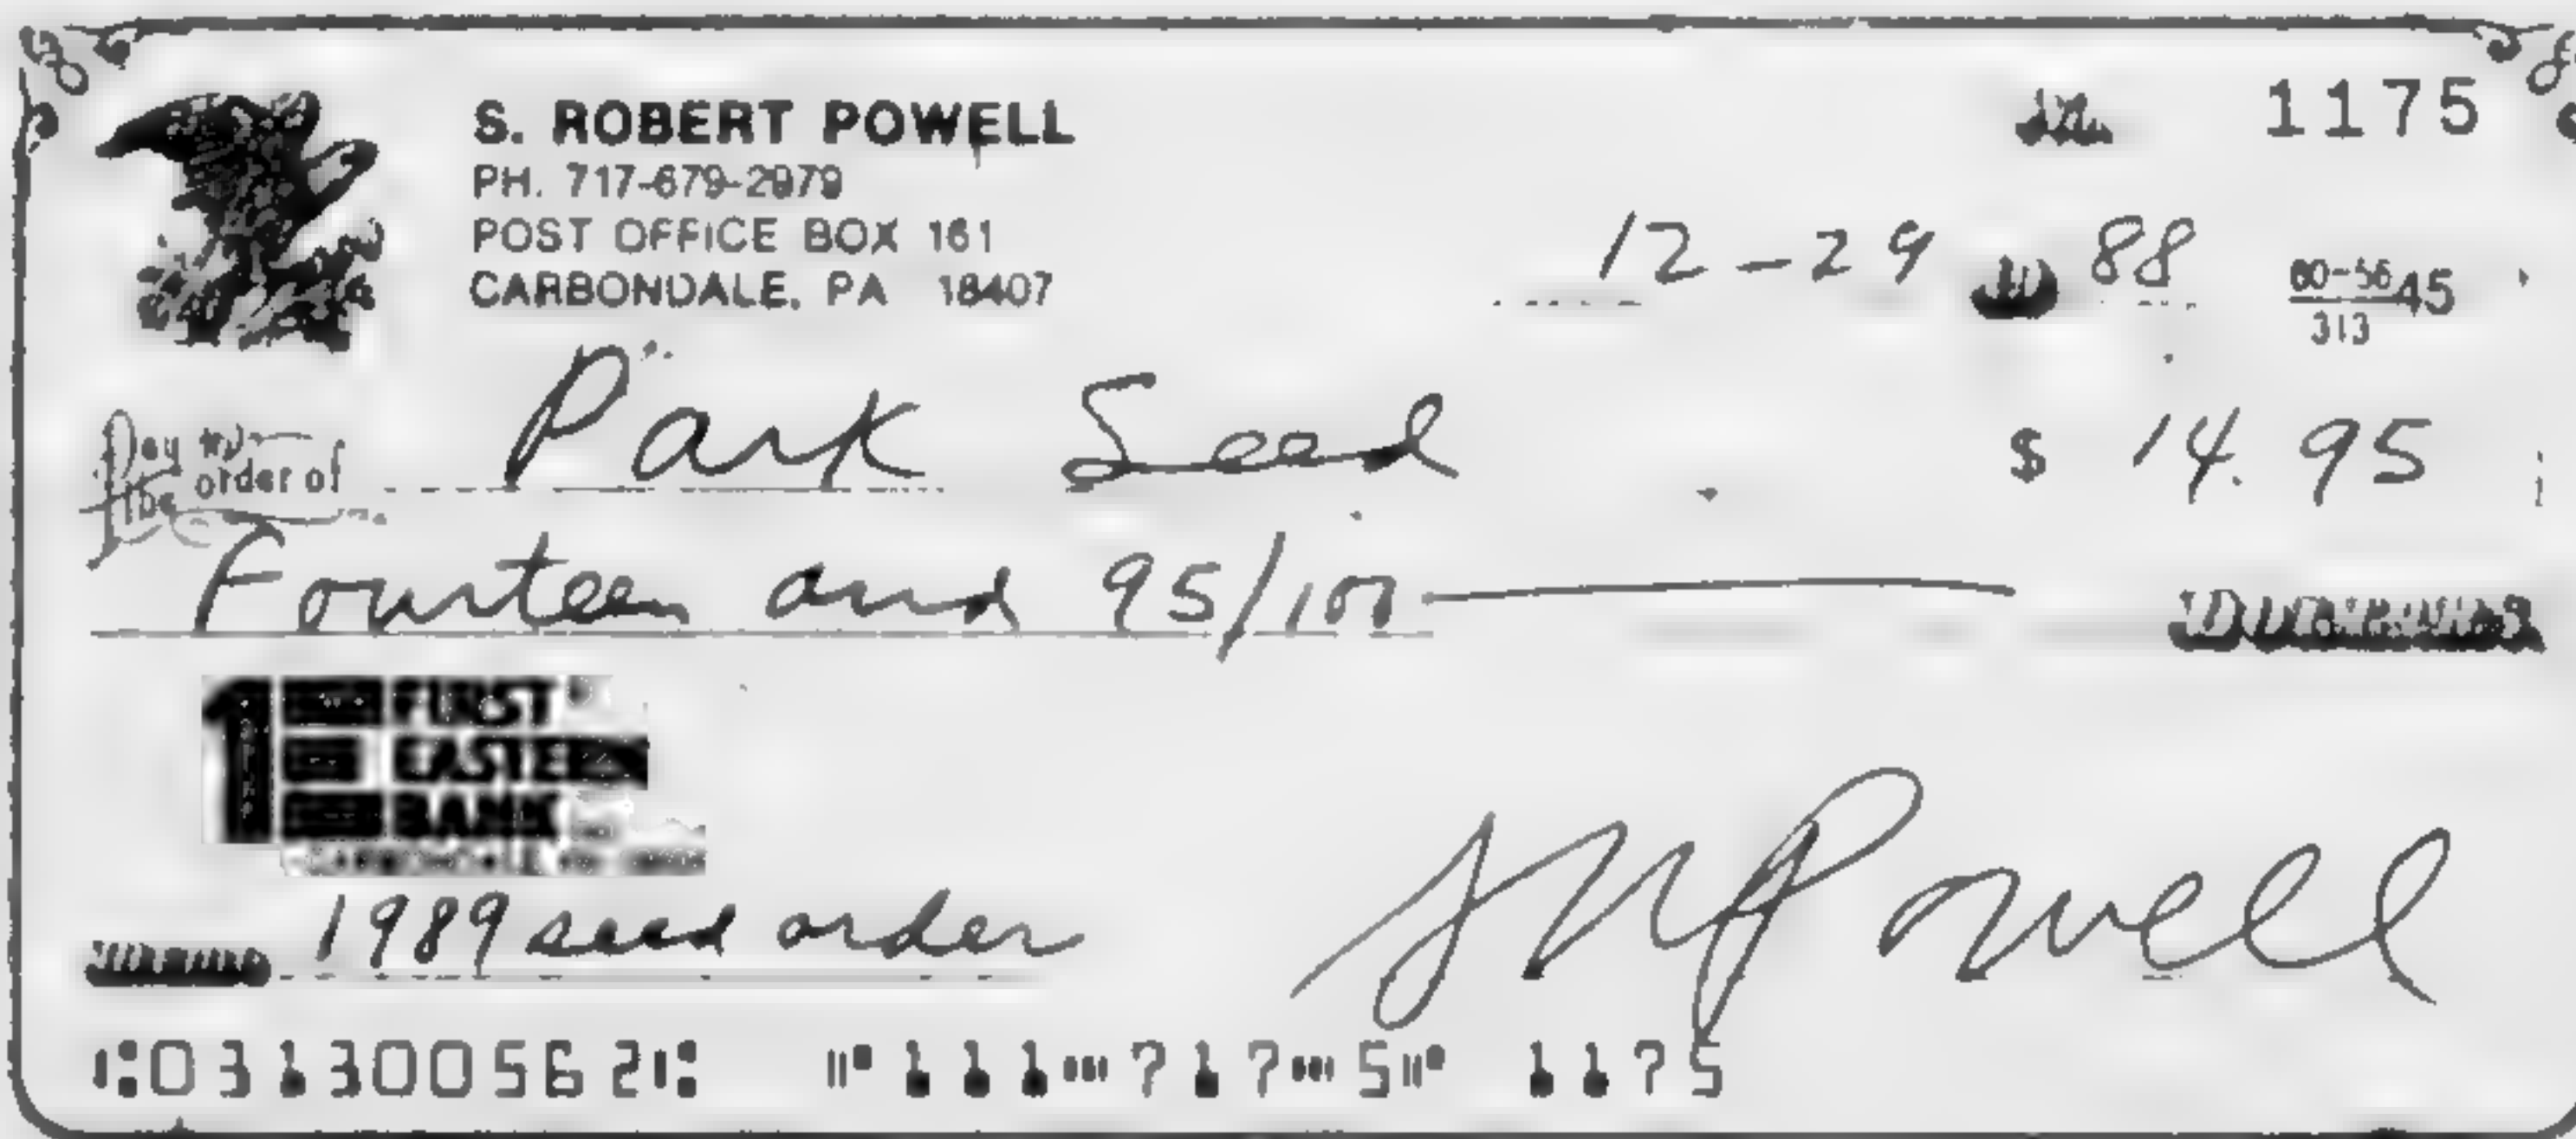 S. ROBERT POWELL
PH. 717-679-2979
POST OFFICE BOX 161
CARBONDALE, PA 18407
1175
12-29 88
60-56 45
313
Pay to the order of Park Seed $ 14.95
Fourteen and 95/100
DOLLARS
1 FIRST
EASTERN
BANK
1989 seed order
S R Powell
⑆031300562⑆ ⑈111⑉717⑉5⑈ 1175